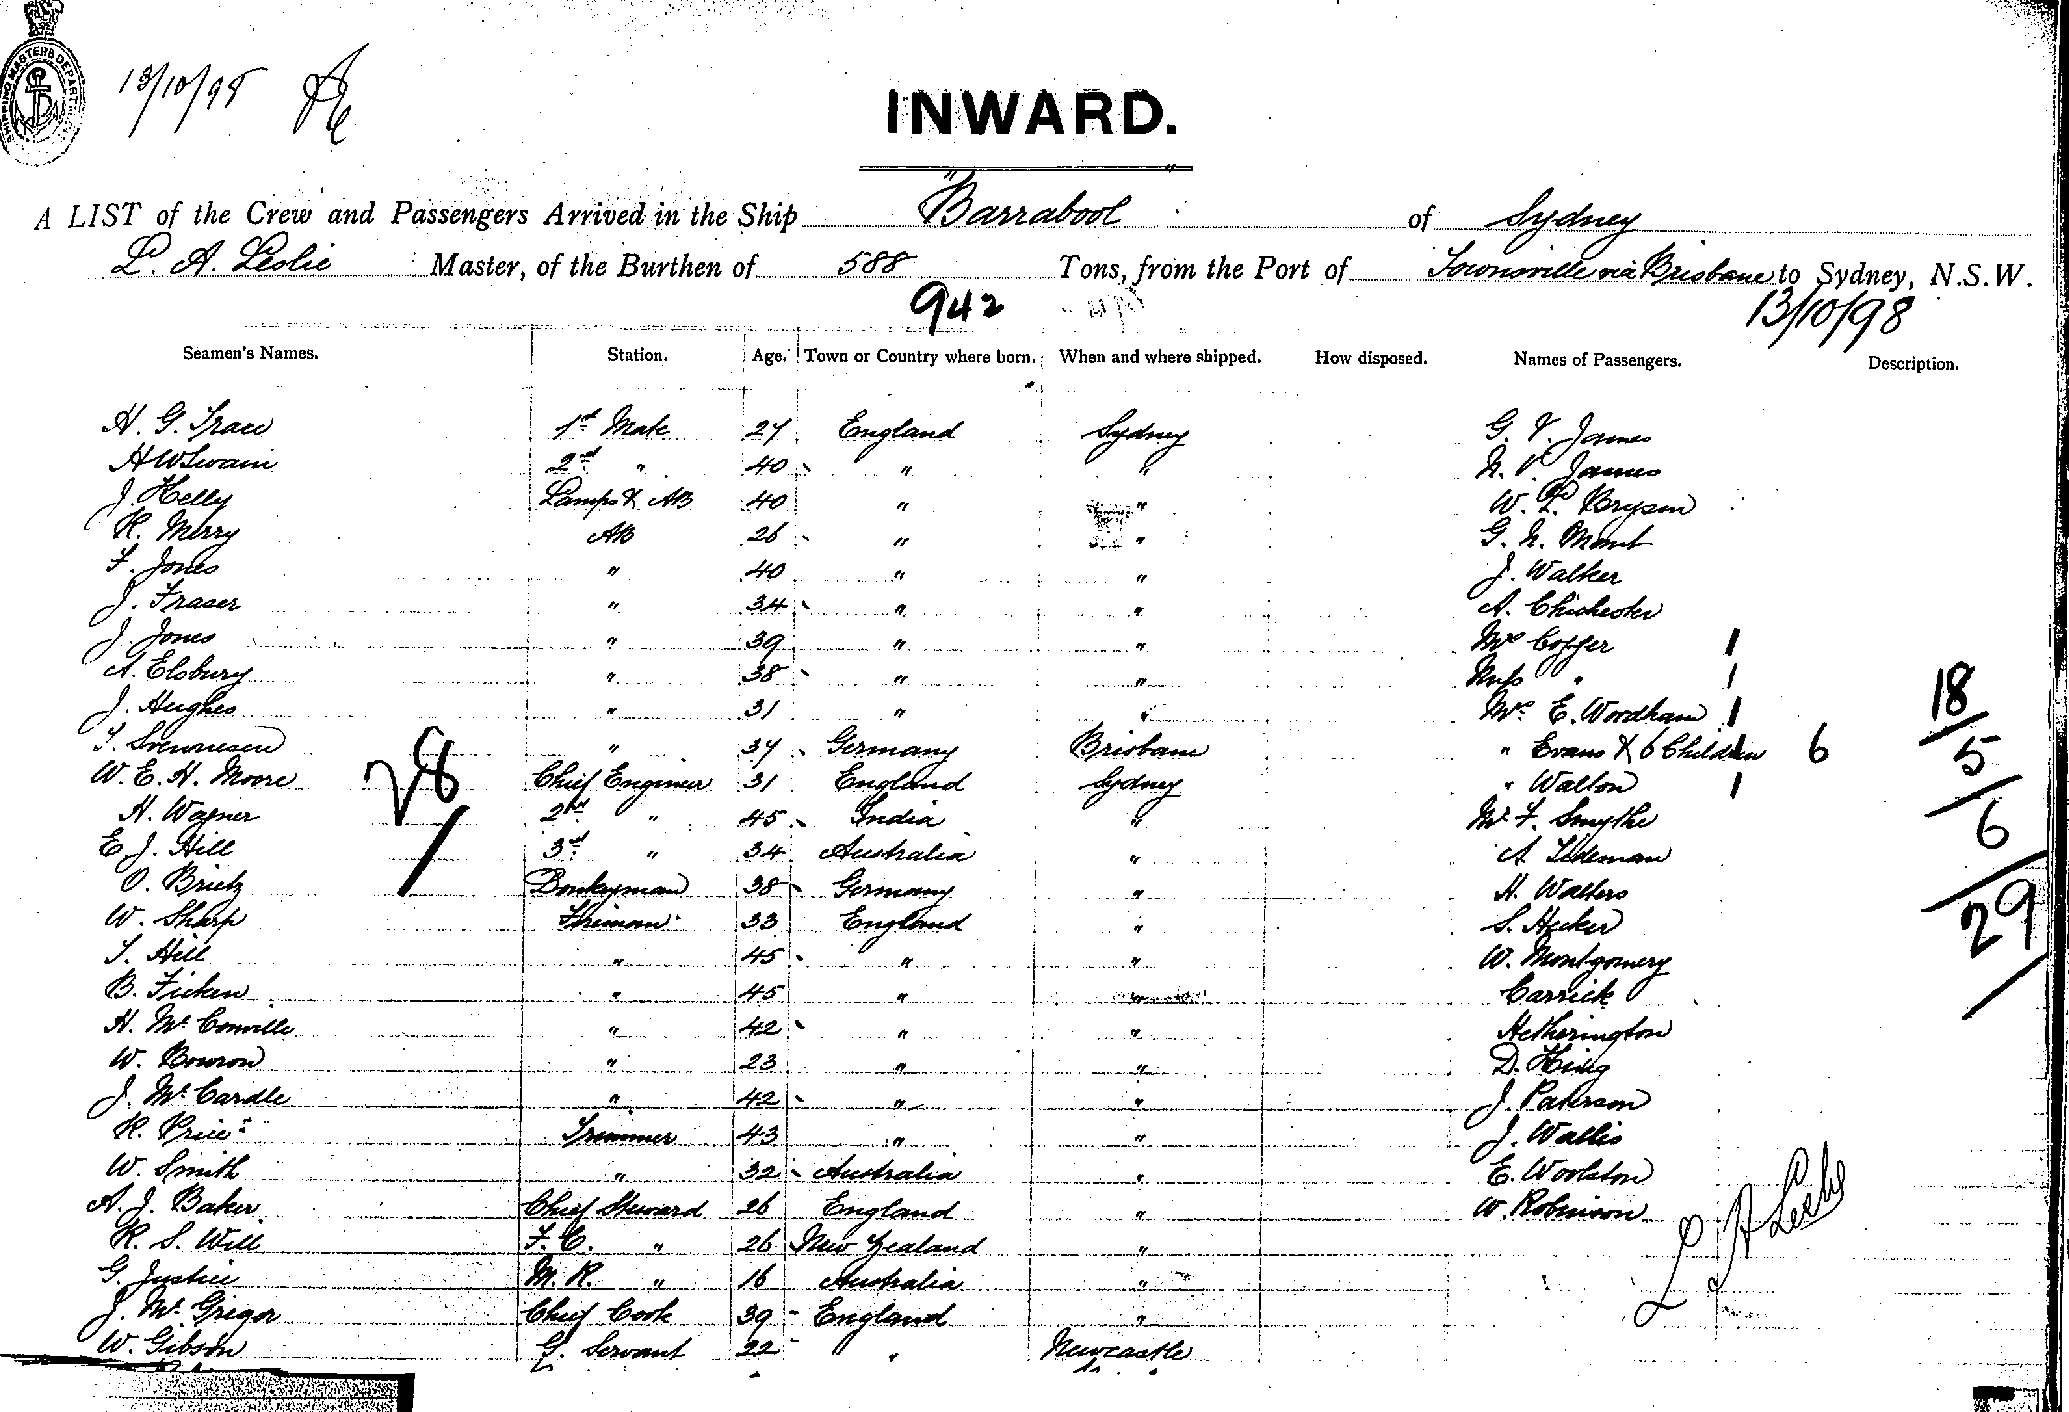 SHIPPING MASTERS DEPART
13/10/98
INWARD.
A LIST of the Crew and Passengers Arrived in the Ship "Barrabool" of Sydney
L. A. Leslie Master, of the Burthen of 588 Tons, from the Port of Townsville via Brisbane to Sydney, N.S.W.
942 13/10/98
Seamen's Names. Station. Age. Town or Country where born. When and where shipped. How disposed. Names of Passengers. Description.
H. G. 1st Mate 27 England Sydney G. V. James
A W Swain 2nd " 40 " " N. V. James
J. Helly Lamps & AB 40 " " W. L. Bryson
R. Merry AB 26 " " G. N. Mant
F. Jones " 40 " " J. Walker
J. Fraser " 34 " " A. Chichester
J. Jones " 39 " " Mrs Coffer 1
A. Elsbury " 38 " " Miss " 1
J. Hughes " 31 " " Mrs E. Wordham 1 18
T. Svennesen " 37 Germany Brisbane " Evans & 6 Children 6 5
W. E. H. Moore 28 Chief Engineer 31 England Sydney " Walton 1
H. Wagner 2nd " 45 India " Mr F. Smythe 6
E J. Hill 3rd " 34 Australia " A. Tideman
O. Brietz Donkeyman 38 Germany " H. Walters
W. Sharp Fireman 33 England " S. Hecker 29
T. Hill " 45 " " W. Montgomery
B. Ficken " 45 " " Carrick
H. McConville " 42 " " Hetherington
W. Bowron " 23 " " D. King
J. McCardle " 42 " " J. Paterson
R. Price Trimmer 43 " " J. Wallis
W. Smith " 32 Australia " E. Woolston
A. J. Baker Chief Steward 26 England " W. Robinson
R. S. Will F. C. " 26 New Zealand " L A Leslie
G. Justice M. R. " 16 Australia "
J. McGregor Chief Cook 39 England "
W. Gibson G. Servant 22 " Newcastle